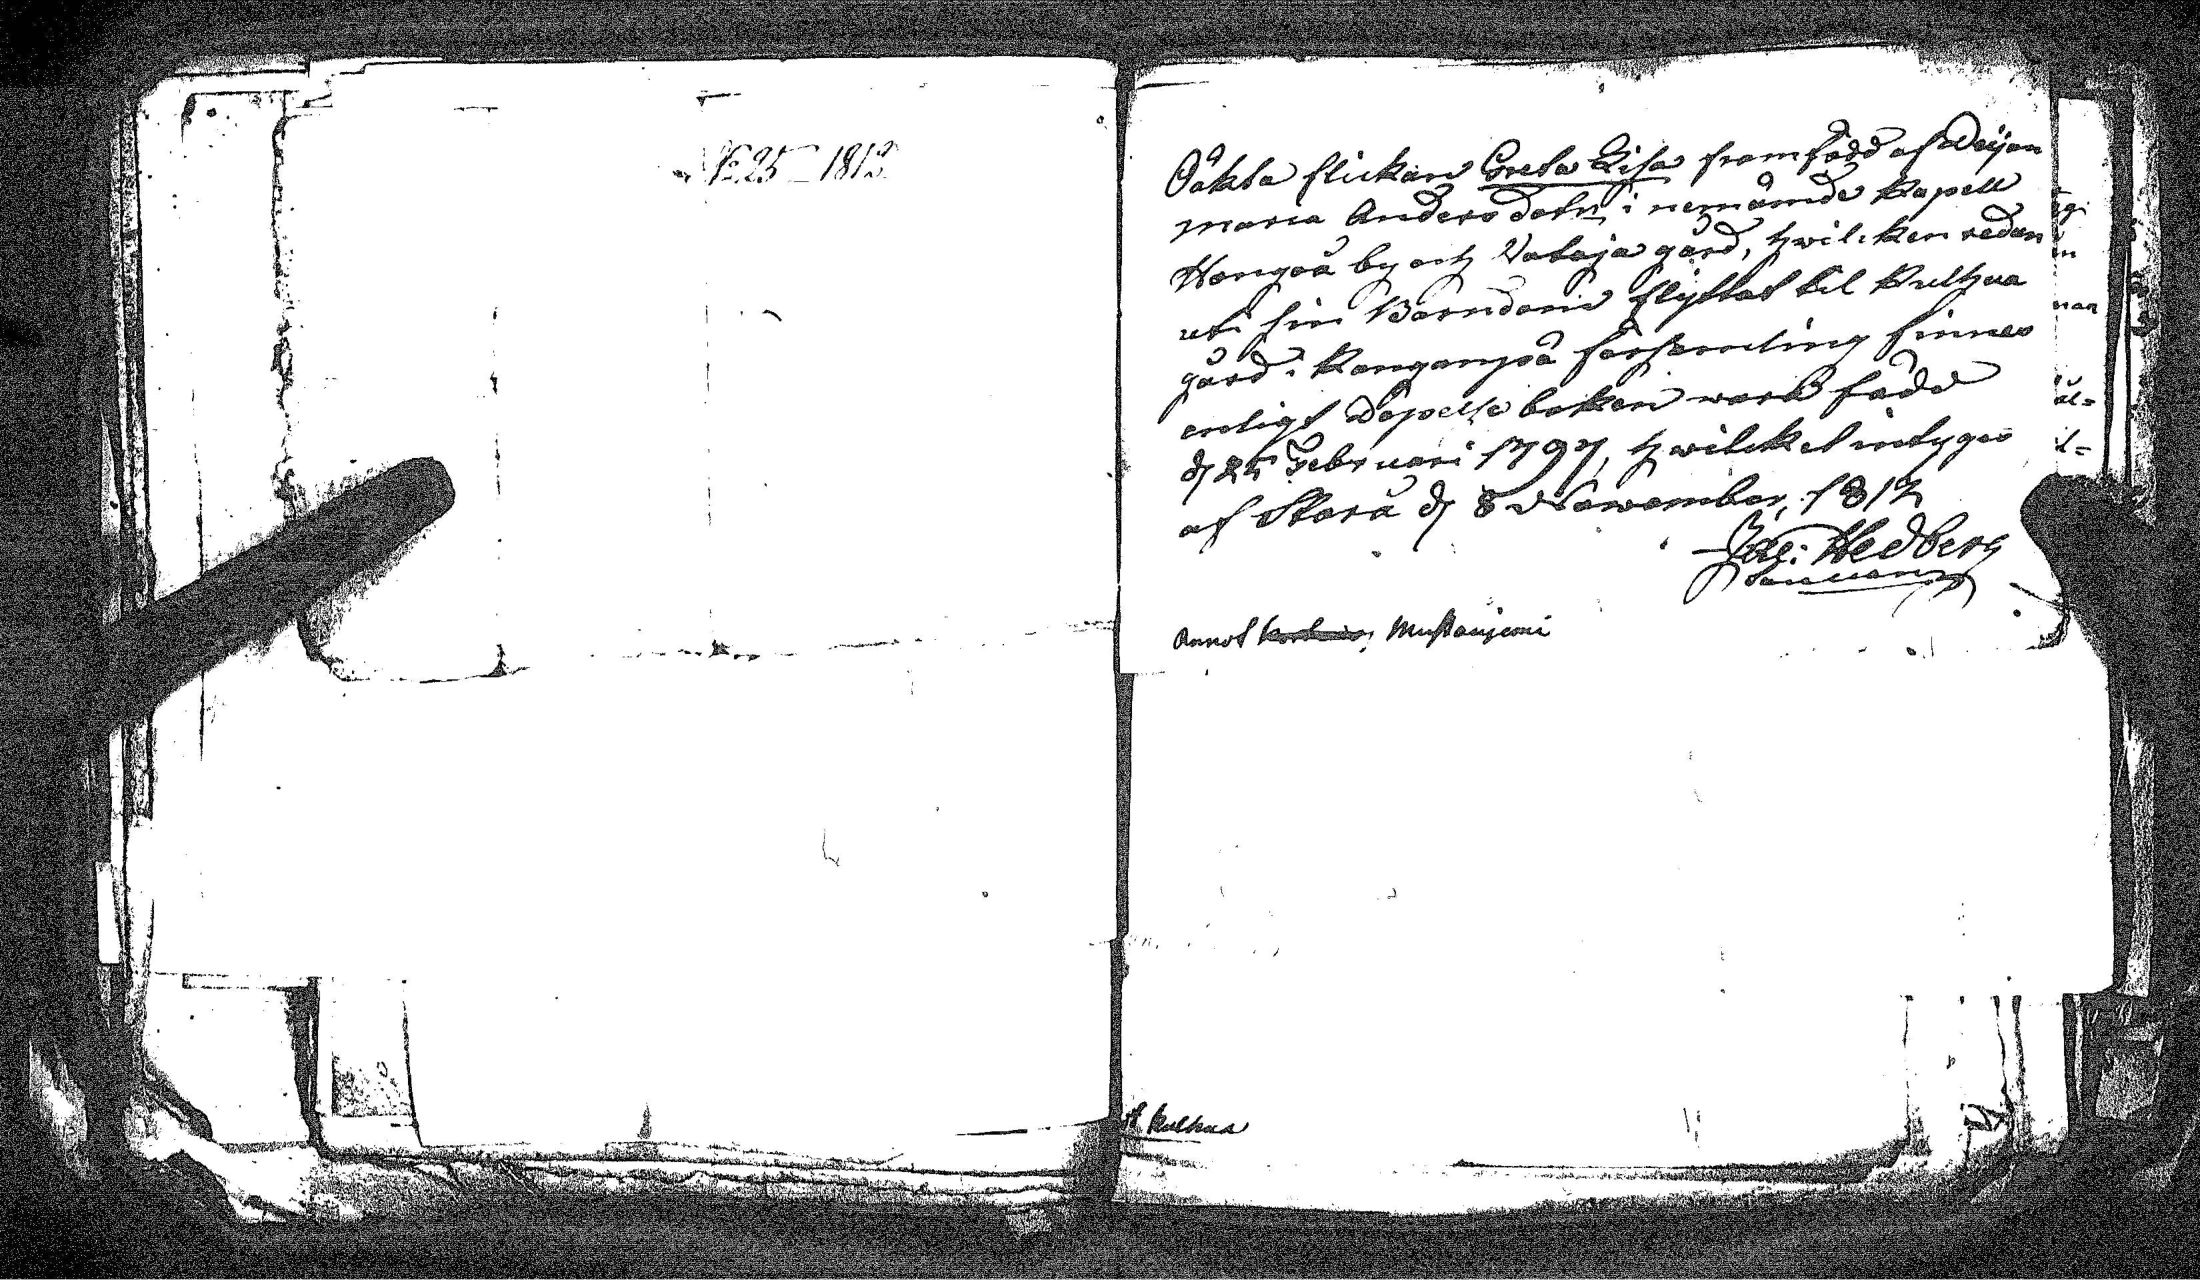 N:25 1812
Oäkta flickan Greta Lisa framfödd af Pigan
Maria Andersdotr i nemämde Kapell
Hongoå by och Vataja gård, hwilcken redan
uti sin Barndom flyttat til Kulhua
gård i Kanganpää församling finnes
enligt Döpelse boken wara född
d 25 Februari 1797, hwilcket intygas
af Starå d 8 November, 1812
Hedberg
annot Mustaijemi
Kulhua